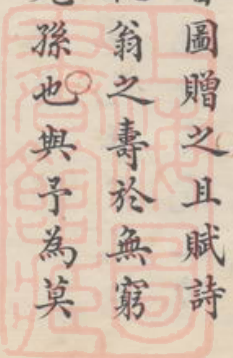 圖贈之且賦詩
翁之壽於無窮
孫也與予為莫